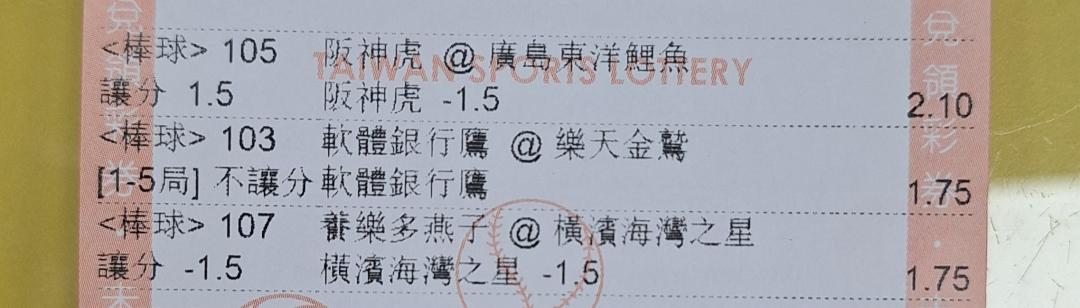 <棒球> 105 阪神虎 @ 廣島東洋鯉魚
TAIWAN SPORTS LOTTERY
讓分 1.5 阪神虎 -1.5 2.10
<棒球> 103 軟體銀行鷹 @ 樂天金鷲
[1-5局] 不讓分 軟體銀行鷹 1.75
<棒球> 107 養樂多燕子 @ 橫濱海灣之星
讓分 -1.5 橫濱海灣之星 -1.5 1.75
兌領彩券
兌領彩券